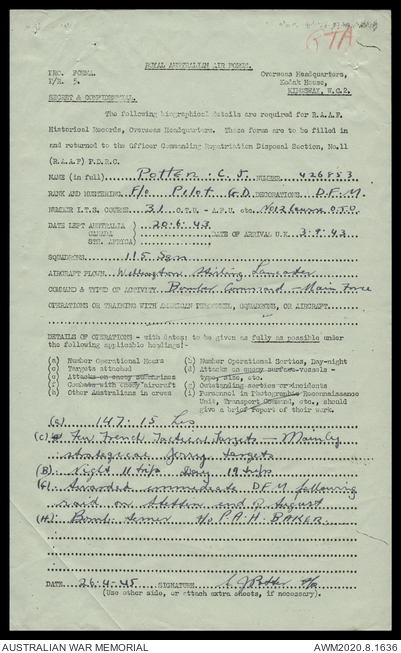 GTA
ROYAL AUSTRALIAN AIR FORCE.
TRC. FORM. Overseas Headquarters,
T/R. 5. Kodak House,
KINGSWAY, W.C.2.
SECRET & CONFIDENTIAL.
The following biographical details are required for R.A.A.F.
Historical Records, Overseas Headquarters. These forms are to be filled in
and returned to the Officer Commanding Repatriation Disposal Section, No.11
(R.A.A.F) P.D.R.C.
NAME (in full) Potter. C. J. NUMBER 426853
RANK AND MUSTERING F/o Pilot G.D DECORATIONS D.F.M.
NUMBER I.T.S. COURSE 31 O.T.U. - A.F.U. etc. No 12 Course O.T.U
DATE LEFT AUSTRALIA ) 20-6-43
CANADA ) DATE OF ARRIVAL U.K. 3-9-43
STH. AFRICA)
SQUADRONS. 115 Sqn
AIRCRAFT FLOWN. Wellington Stirling Lancaster
COMMAND & TYPE OF ACTIVITY. Bomber Command - Main Force
OPERATIONS OR TRAINING WITH AMERICAN PERSONNEL, SQUADRONS, OR AIRCRAFT.
DETAILS OF OPERATIONS - with dates; to be given as fully as possible under
the following applicable headings:-
(a) Number Operational Hours (b) Number Operational Sorties, Day-night
(c) Targets attached (d) Attacks on enemy surface-vessels -
(e) Attacks on enemy submarines type, size, etc.
(f) Combats with enemy aircraft (g) Outstanding sorties or incidents
(h) Other Australians in crews (i) Personnel in Photographic Reconnaissance
Unit, Transport Command, etc., should
give a brief report of their work.
147 . 15 hrs
(C) Few French Tactical Targets - Mainly
strategical Jerry targets
(B) Night 11 trips Day 19 trips
Awarded immediate D.F.M following
raid on Stettin end of August
(H) Bomb-aimer F/o P.A.H. BAKER.
DATE 26-4-45 SIGNATURE C J Potter F/o
(Use other side, or attach extra sheets, if necessary).
AUSTRALIAN WAR MEMORIAL AWM2020.8.1636